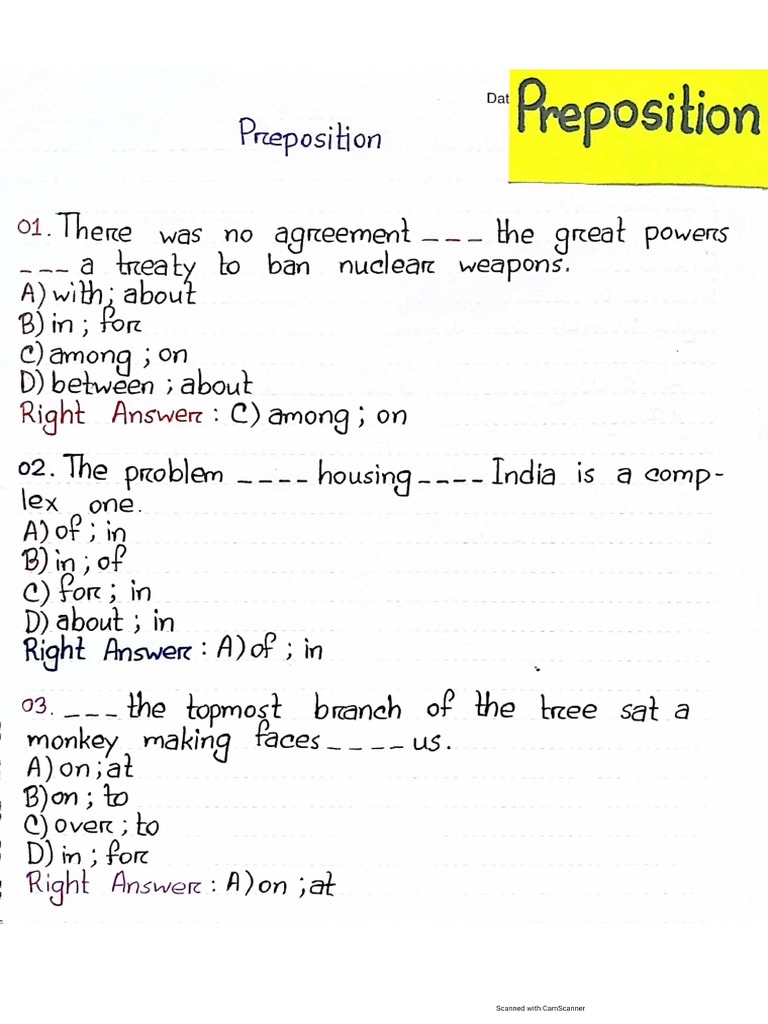 Dat
Preposition
Preposition
01. There was no agreement _ _ _ the great powers
_ _ _ a treaty to ban nuclear weapons.
A) with; about
B) in ; for
C) among ; on
D) between ; about
Right Answer : C) among ; on
02. The problem _ _ _ _ housing _ _ _ _ India is a comp-
lex one.
A) of ; in
B) in ; of
C) for ; in
D) about ; in
Right Answer : A) of ; in
03. _ _ _ the topmost branch of the tree sat a
monkey making faces _ _ _ _ us.
A) on ; at
B) on ; to
C) over ; to
D) in ; for
Right Answer : A) on ; at
Scanned with CamScanner